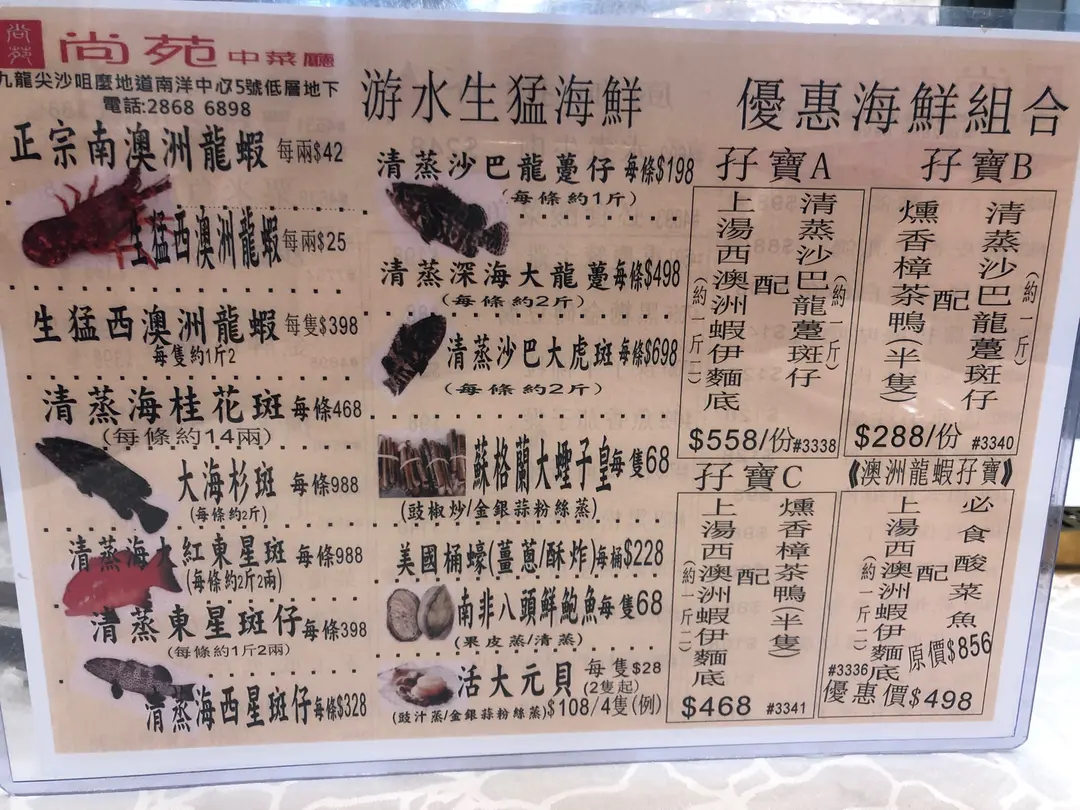 尚苑
尚苑中菜廳
九龍尖沙咀麼地道南洋中心75號低層地下
電話:2868 6898
游水生猛海鮮
優惠海鮮組合
正宗南澳洲龍蝦 每兩$42
生猛西澳洲龍蝦 每兩$25
生猛西澳洲龍蝦 每隻$398
每隻約1斤2
清蒸海桂花斑 每條468
(每條約14兩)
大海杉斑 每條988
(每條約2斤)
清蒸海大紅東星斑 每條988
(每條約2斤2兩)
清蒸東星斑仔 每條398
(每條約1斤2兩)
清蒸海西星斑仔 每條$328
清蒸沙巴龍躉仔 每條$198
(每條約1斤)
清蒸深海大龍躉 每條$498
(每條約2斤)
清蒸沙巴大虎斑 每條$698
(每條約2斤)
蘇格蘭大蟶子皇 每隻68
(豉椒炒/金銀蒜粉絲蒸)
美國桶蠔(薑蔥/酥炸) 每桶$228
南非八頭鮮鮑魚 每隻68
(果皮蒸/清蒸)
活大元貝 每隻$28
(2隻起)
(豉汁蒸/金銀蒜粉絲蒸)$108/4隻(例)
孖寶A
清蒸沙巴龍躉斑仔
(約一斤)
配
上湯西澳洲蝦伊麵底
(約一斤二)
$558/份 #3338
孖寶B
清蒸沙巴龍躉斑仔
(約一斤)
配
燻香樟茶鴨(半隻)
$288/份 #3340
孖寶C
燻香樟茶鴨(半隻)
配
上湯西澳洲蝦伊麵底
(約一斤二)
$468 #3341
《澳洲龍蝦孖寶》
必食酸菜魚
配
上湯西澳洲蝦伊麵底
(約一斤二)
原價$856
#3336
優惠價$498